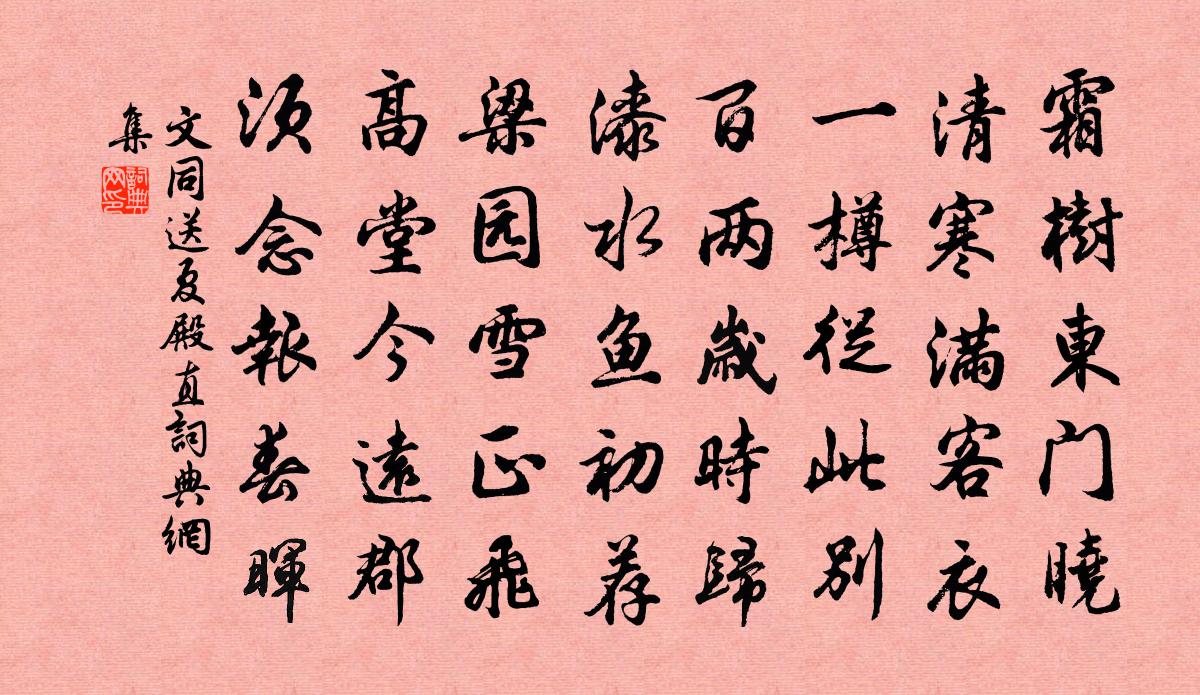 霜樹東门曉
清寒滿客衣
一樽從此别
百两歲時歸
漆水鱼初荐
梁园雪正飛
高堂今遠郡
须念報春暉
文同送夏殿直詞典網
集
詞典网印